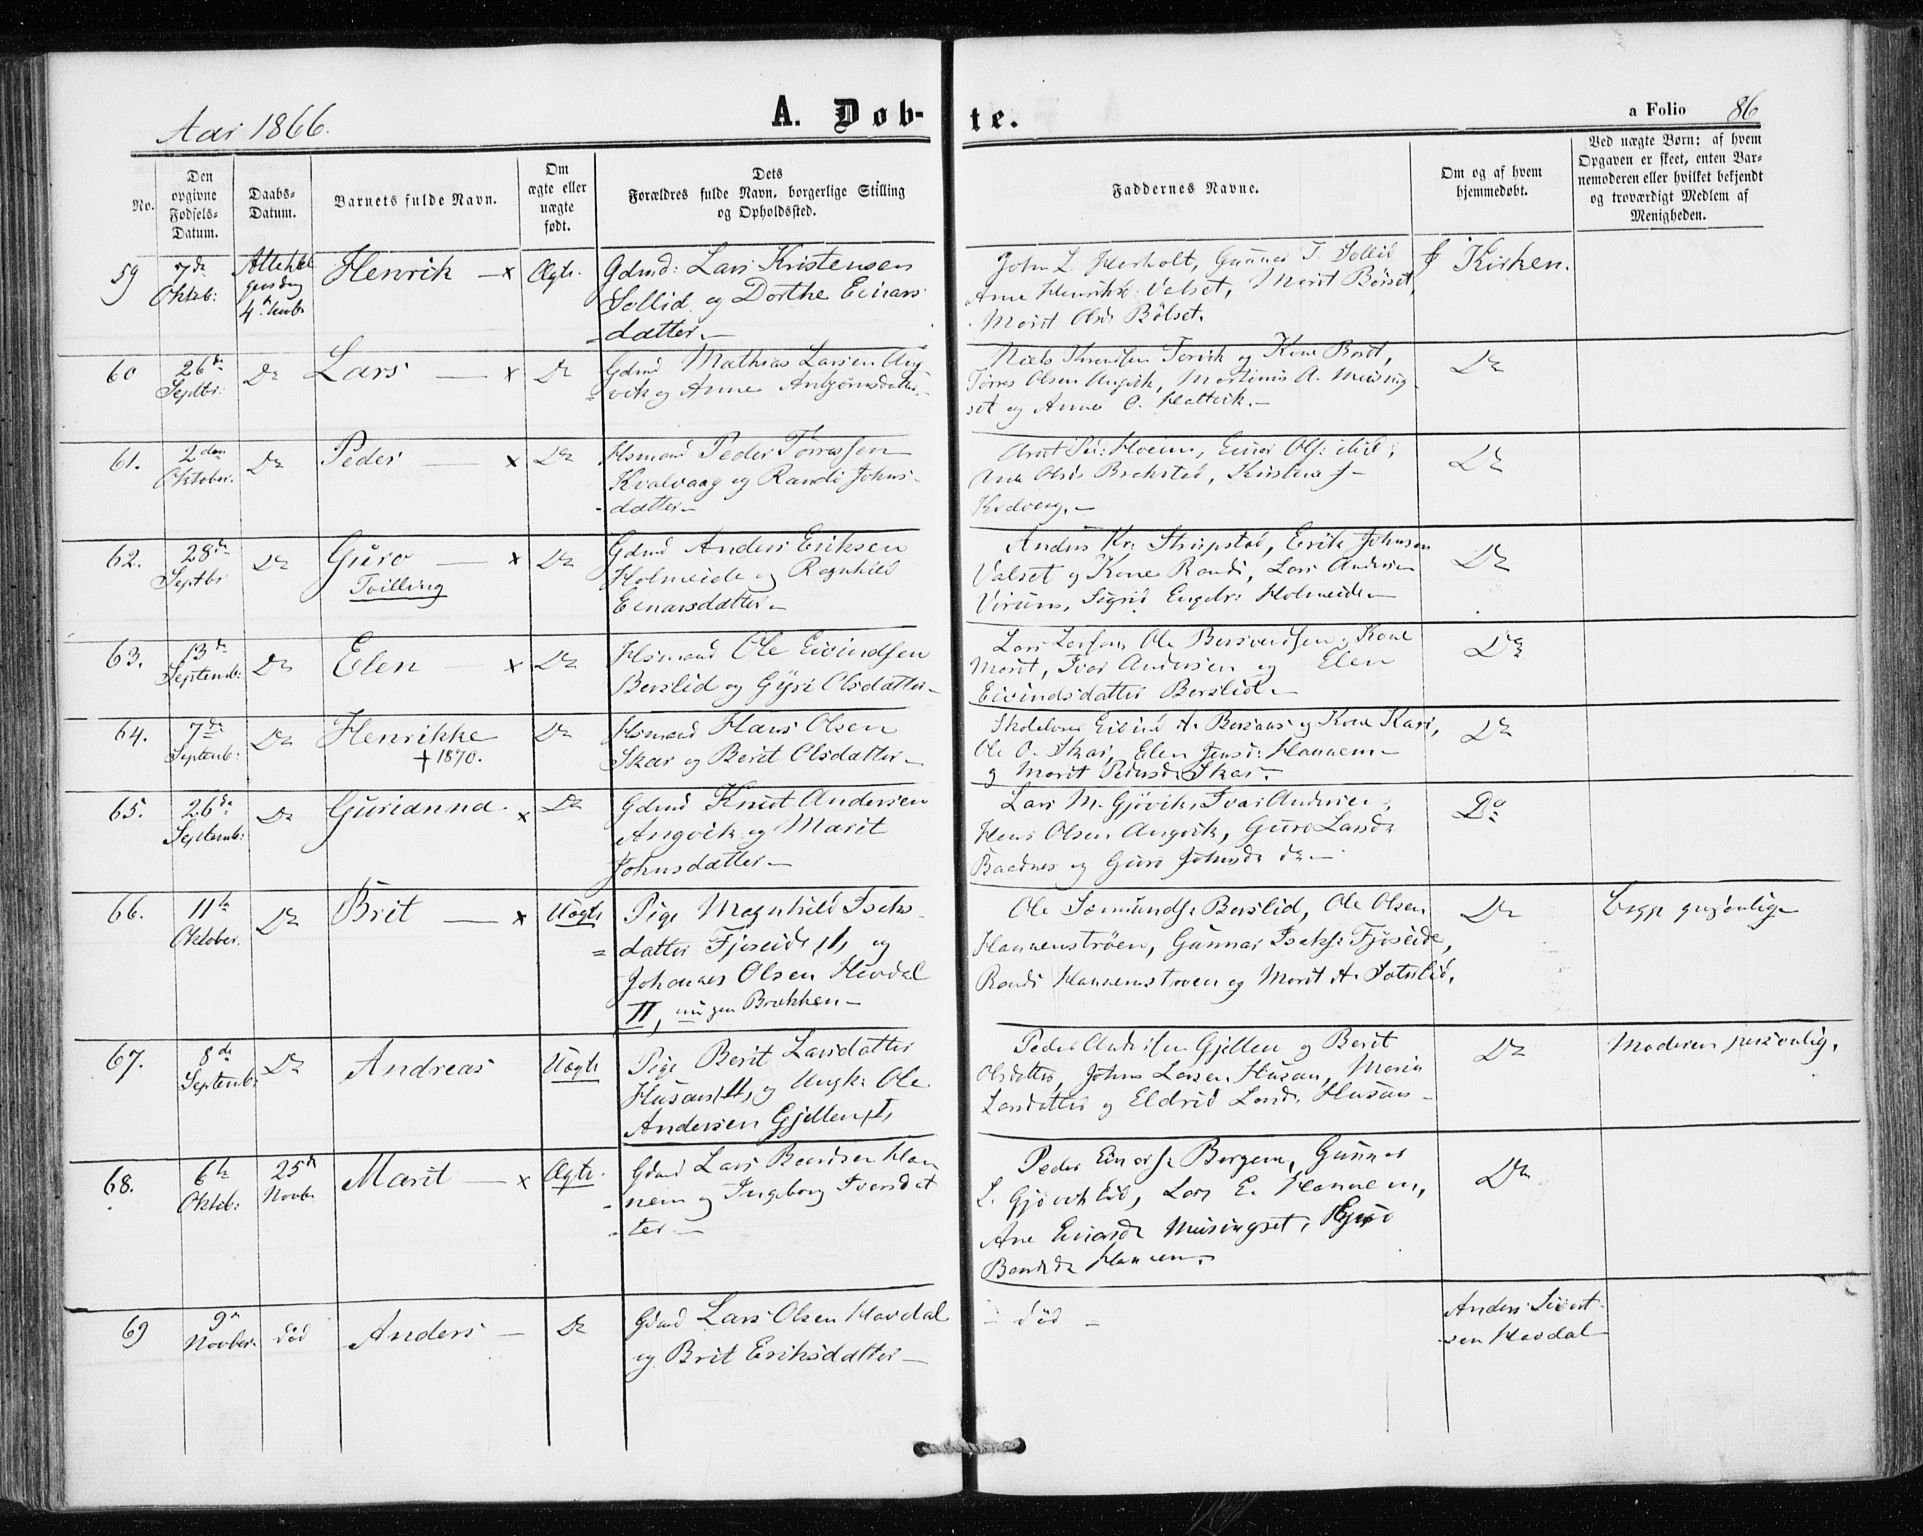 Aar 1866.
A. Døb-
te.
a Folio 86
No.
Den opgivne Fødsels-Datum.
Daabs-Datum.
Barnets fulde Navn.
Om ægte eller nægte født.
Dets Forældres fulde Navn, borgerlige Stilling og Opholdssted.
Faddernes Navne.
Om og af hvem hjemmedøbt.
Ved nægte Børn: af hvem Opgaven er skeet, enten Barnemoderen eller hvilket bekjendt og troværdigt Medlem af Menigheden.
59
7de Oktob:
4de
Henrik — x
Ægte.
Gdmd: Lars Kristensen
Sollid og Dorthe Einars-
datter. —
Gunner T. Sollid
Anne Henriksd: Valset, Marit Bøiset,
Marit Olsd. Bølset.
I Kirken.
60
26de Septbr:
Do
Lars — x
Do
Gdmd Mathias Larsen Ang-
vik og Anne
Torvik og Kone Berit,
Olsen Angvik, Martinus A. Meising-
set og Anne O. Hattvik. —
Do
61.
2den Oktober.
Do
Peder — x
Do
Hsmand Peder
Kvalvaag og Randi Johns-
datter —
Do
62.
28de Septbr
Do
Guro — x
Tvilling
Do
Gdmd Anders Eriksen
Holmeide og Ragnhild
Einarsdatter —
Anders Kr: Strupstad, Erik Johnsen
Valset og Kone Randi, Lars Andersen
Virum, Sigrid Engebr: Holmeide —
Do
63.
13de Septemb:
Do
Elen — x
Do
Hsmand Ole Eivindsen
Berslid og Gjøri Olsdatter —
Lars Larsen, Ole Bersvendsen, Kone
Marit, Ivar Andersen og Elen
Eivindsdatter Berslid. —
Do
64.
7de Septemb:
Do
Henrikke
+ 1870.
Do
Hsmand Hans Olsen
Skar og Berit Olsdatter —
Eivind A. og Kone Kari,
Ole O. Skar, Elen Jensd: Hannem —
og Marit Pedersd: Skar.
Do
65.
26de Septemb:
Do
Gurianna. x
Do
Gdmd Knut Andersen
Angvik og Marit
Johnsdatter —
Lars M. Gjøvik, Ivar Andersen,
Hans Olsen Angvik, Guro Larsd.
Baadnes og Guro Johnsd. do —
Do
66.
11te Oktober.
Do
Brit — x
Uægte
Pige Magnhild Iseks-
datter Fjøseide, I, og
Johannes Olsen Havdal
II, Brekken —
Ole Sæmunds: Berslid, Ole Olsen
Hannemstrøen, Gunnar Iseks: Fjøseide,
Randi Hannemstrøen og Marit A.
Do
67.
8de Septemb:
Do
Andreas
Uægte
Pige Berit Larsdatter
Husan, II, og Ungk: Ole
Andersen Gjelten, I,
Peder Andersen Gjelten og Berit
Olsdatter, Johns Larsen Husan, Maria
Larsdatter og Eldrid Larsd. Husan —
Do
Moderen personlig.
68.
6te Oktob:
25de Novbr
Marit — x
Ægte.
Gdmd Lars Baardsen Han-
nem og Ingeborg Iversdat-
ter —
Peder Einars: Bergem, Gunner
L. Gjøvik Eid, Lars E. Hannem,
Ane Einarsd. Meisingset,
Hannem.
Do
69
9de Novber.
død
Anders —
Do
Gdmd Lars Olsen Havdal
og Brit Eriksdatter —
— død —
Anders Sivert-
sen Havdal